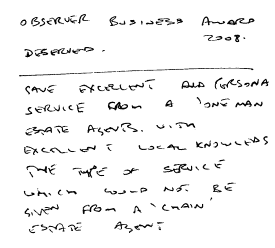 OBSERVER BUSINESS AWARD
2008.
DESERVED.
GAVE EXCELLENT AND PERSONA
SERVICE FROM A 'ONE MAN
ESTATE AGENTS. WITH
EXCELLENT LOCAL KNOWLEDG
THE TYPE OF SERVICE
WHICH WOULD NOT BE
GIVEN FROM A 'CHAIN'
ESTATE AGENT